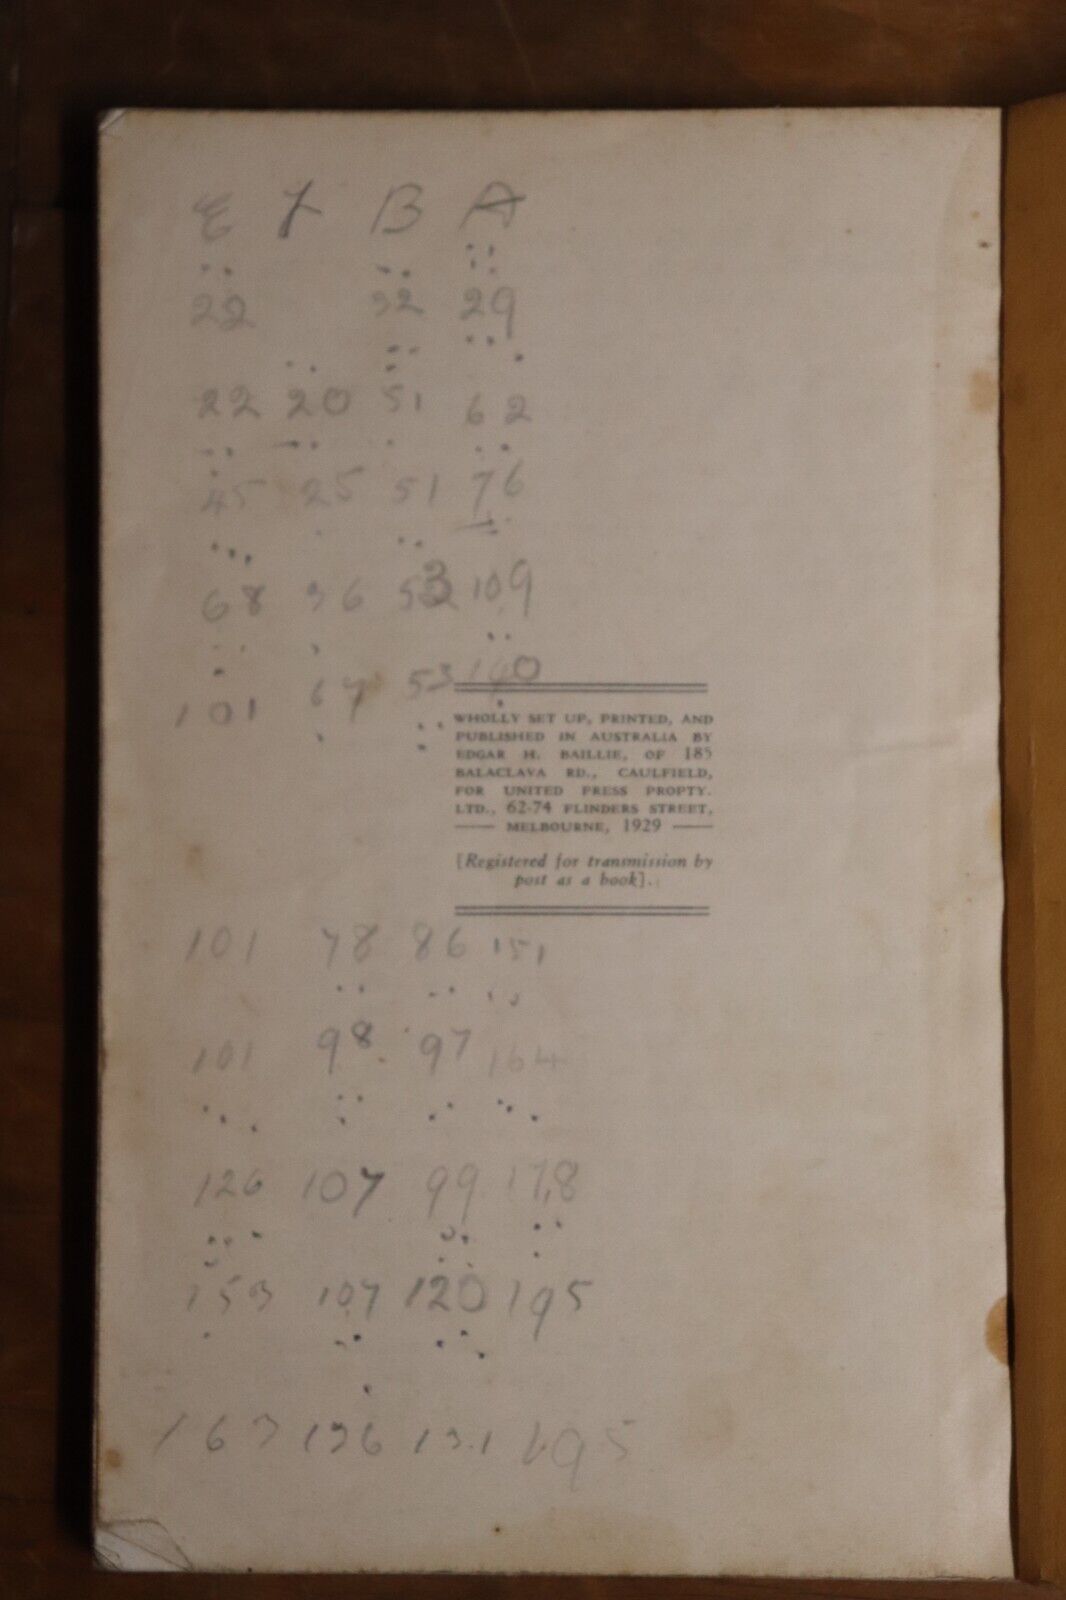 E L B A
22 32 29
22 20 51 62
45 25 51 76
68 36 53 109
101 67 53 140
WHOLLY SET UP, PRINTED, AND
PUBLISHED IN AUSTRALIA BY
EDGAR H. BAILLIE, OF 185
BALACLAVA RD., CAULFIELD,
FOR UNITED PRESS PROPTY.
LTD., 62-74 FLINDERS STREET,
MELBOURNE, 1929
[Registered for transmission by
post as a book].
101 78 86 151
101 98 97 164
126 107 99 178
153 107 120 195
163 136 131 195